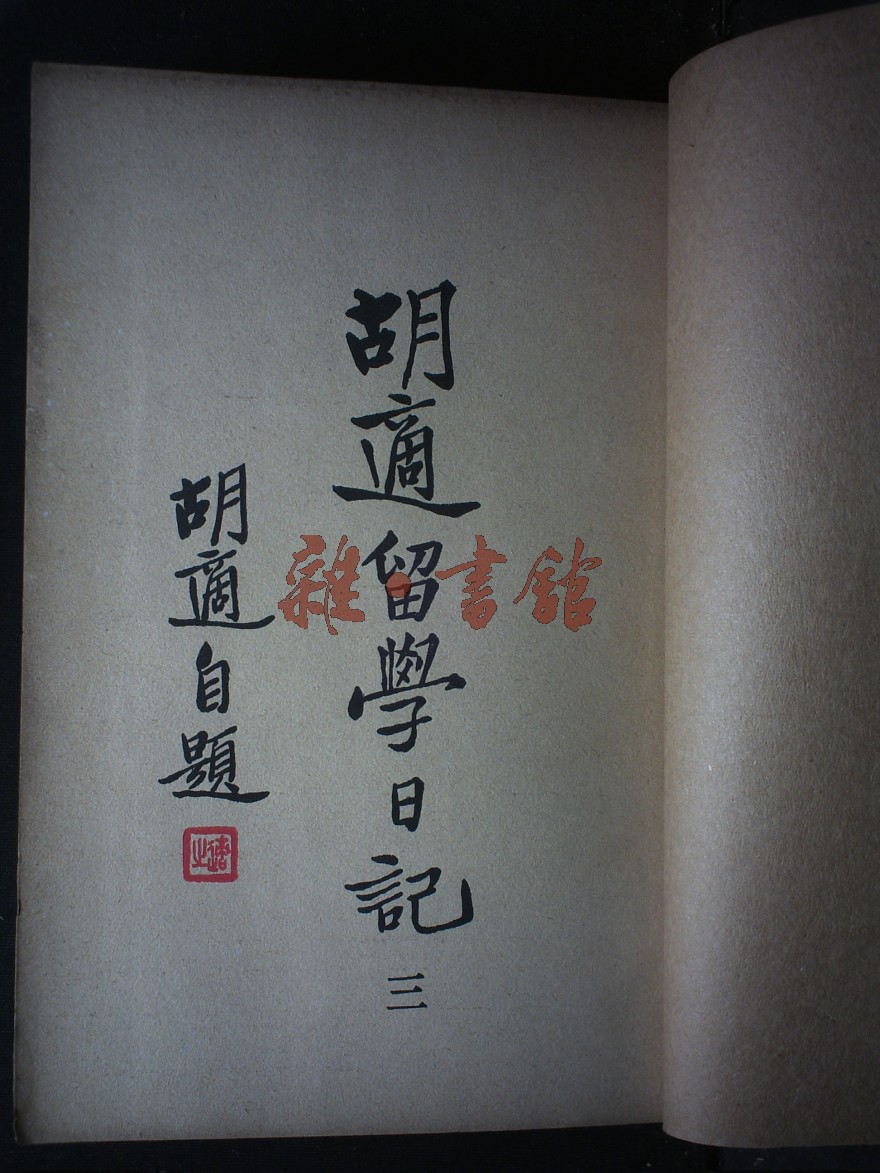 胡適留學日記
三
胡適自題
適之
雜·書館